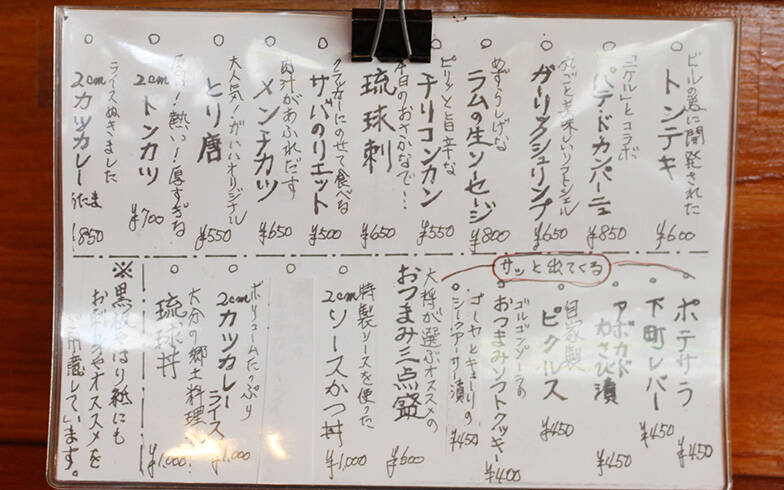 ビールの為に開発された
トンテキ
¥600
「ニケル」とコラボ
パテ・ド・カンパーニュ
¥850
丸ごと美味しいソフトシェル
ガーリックシュリンプ
¥650
めずらしげな
ラムの生ソーセージ
¥800
ピリッと旨辛な
チリコンカン
¥550
本日のおさかなで…
琉球刺
¥650
クラッカーにのせて食べる
サバのリエット
¥500
肉汁があふれだす
メンチカツ
¥650
大人気!ガハハオリジナル
とり唐
¥550
厚い!熱い!厚すぎな
2cm
トンカツ
¥700
ライスぬきました
2cm
カツカレー
¥850
サッと出てくる
ポテサラ
¥450
下町レバー
¥450
アボカド
わさび漬
¥450
自家製
ピクルス
¥450
ゴルゴンゾーラの
おつまみソフトクッキー
¥400
ゴーヤとキューリの
シークァーサー漬
¥450
大将が選ぶオススメの
おつまみ三点盛
¥600
特製ソースを使った
2cm
ソースかつ丼
¥1,000
ボリュームたっぷり
2cm
カツカレー
ライス
¥1,000
大分の郷土料理
琉球丼
¥1,000
※黒板やはり紙にも
お料理やオススメを
用意しています。